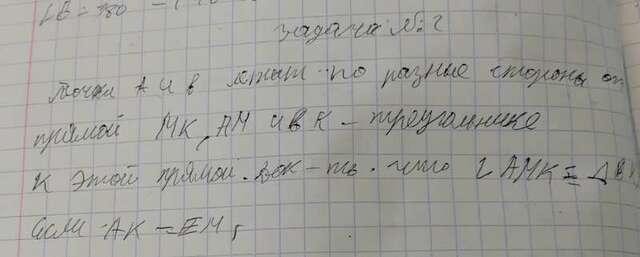 LB = 380 -
задача №2
точки А и в лежат по разные стороны от
прямой МК, АМ и ВК - треугольнике
к этой прямой. Док-ть. что ∠АМК = ΔВ
если АК = ЕМ,